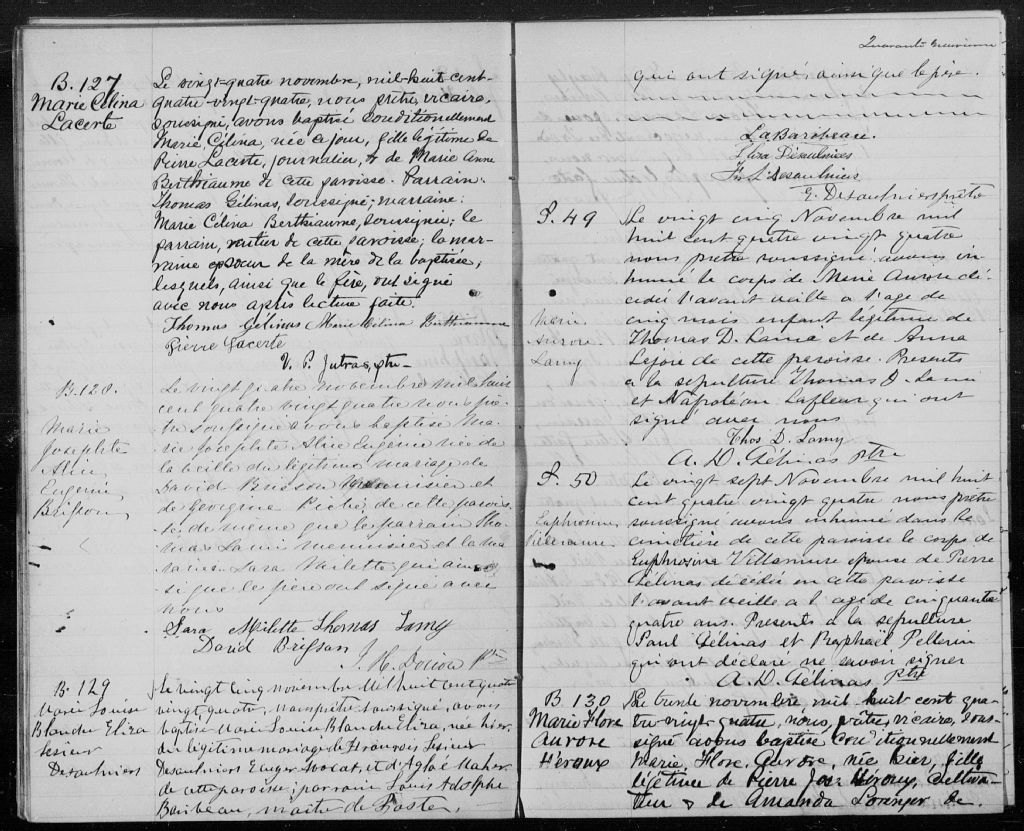 B. 127
Marie Célina
Lacerte
Le vingt-quatre novembre, mil-huit cent-
quatre-vingt-quatre, nous prêtre, vicaire,
soussigné, avons baptisé conditionnellement
Marie, Célina, née ce jour, fille légitime de
Pierre Lacerte, journalier, & de Marie Anne
Berthiaume de cette paroisse. Parrain:
Thomas Gélinas, soussigné; marraine:
Marie Célina Berthiaume, soussignée; le
parrain, de cette paroisse; la mar-
raine soeur de la mère de la baptisée;
lesquels, ainsi que le père, ont signé
avec nous après lecture faite.
Thomas Gélinas Marie Célina Berthiaume
Pierre Lacerte
V. P. Jutras, ptre
B. 128.
Marie
Josephte
Alice
Eugenie
Brisson
Le vingt quatre novembre mil huit
cent quatre vingt quatre nous prê-
tre soussigné avons baptisé Ma-
rie Josephte Alice Eugénie née de
la veille du légitime mariage de
David Brisson menuisier et
de Georgine Piché de cette parois-
se de même que le parrain Tho-
mas Lami menuisier et la ma-
raine Sara Milette qui ainsi
que le père ont signé avec
nous
Sara Milette Thomas Lamy
David Brisson
J. H. Ptre
B. 129
Marie Louise
Blanche Eliza
Lesieur
Desaulniers
Le vingt cinq novembre mil huit cent quatre
vingt quatre, nous prêtre soussigné, avons
baptisé Marie Louise Blanche Eliza, née hier,
du légitime mariage de François Lesieur
Desaulniers Ecuyer Avocat, et d'Aglaé Maher
de cette paroisse; parrain Louis Adolphe
Barbeau, maître de Poste,
qui ont signé, ainsi que le père.
L A Barbeau.
Eliza Désaulniers
Fr. L. Desaulniers
E. Desaulniers ptre
S. 49
Marie
Aurore
Lamy
Le vingt cinq Novembre mil
huit cent quatre vingt quatre
nous prêtre soussigné avons in-
humé le corps de Marie Aurore dé-
cédée l'avant veille a l'age de
cinq mois enfant légitime de
Thomas D. Lamie et de Anna
Lajoie de cette paroisse. Presents
a la sépulture Thomas D. Lami
et Napoléon Lafleur qui ont
signé avec nous
Thos D. Lamy
A. D. Gélinas ptre
S. 50
Euphrosine
Villemure
Le vingt sept Novembre mil huit
cent quatre vingt quatre nous prêtre
soussigné avons inhumé dans le
cimetière de cette paroisse le corps de
Euphrosine Villemure épouse de Pierre
Gélinas décédée en cette paroisse
l'avant veille a l'age de cinquante
quatre ans. Presents a la sépulture
Paul Gélinas et Raphaël Pellerin
qui ont déclaré ne savoir signer
A. D. Gélinas ptre
B. 130
Marie Flore
Aurore
Héroux
Le trente novembre, mil huit cent qua-
tre vingt-quatre, nous, prêtre, vicaire, sous-
signé avons baptisé conditionnellement
Marie, Flore, Aurore, née hier, fille
légitime de Pierre José Héroux, cultiva-
teur & de Amanda Loranger de